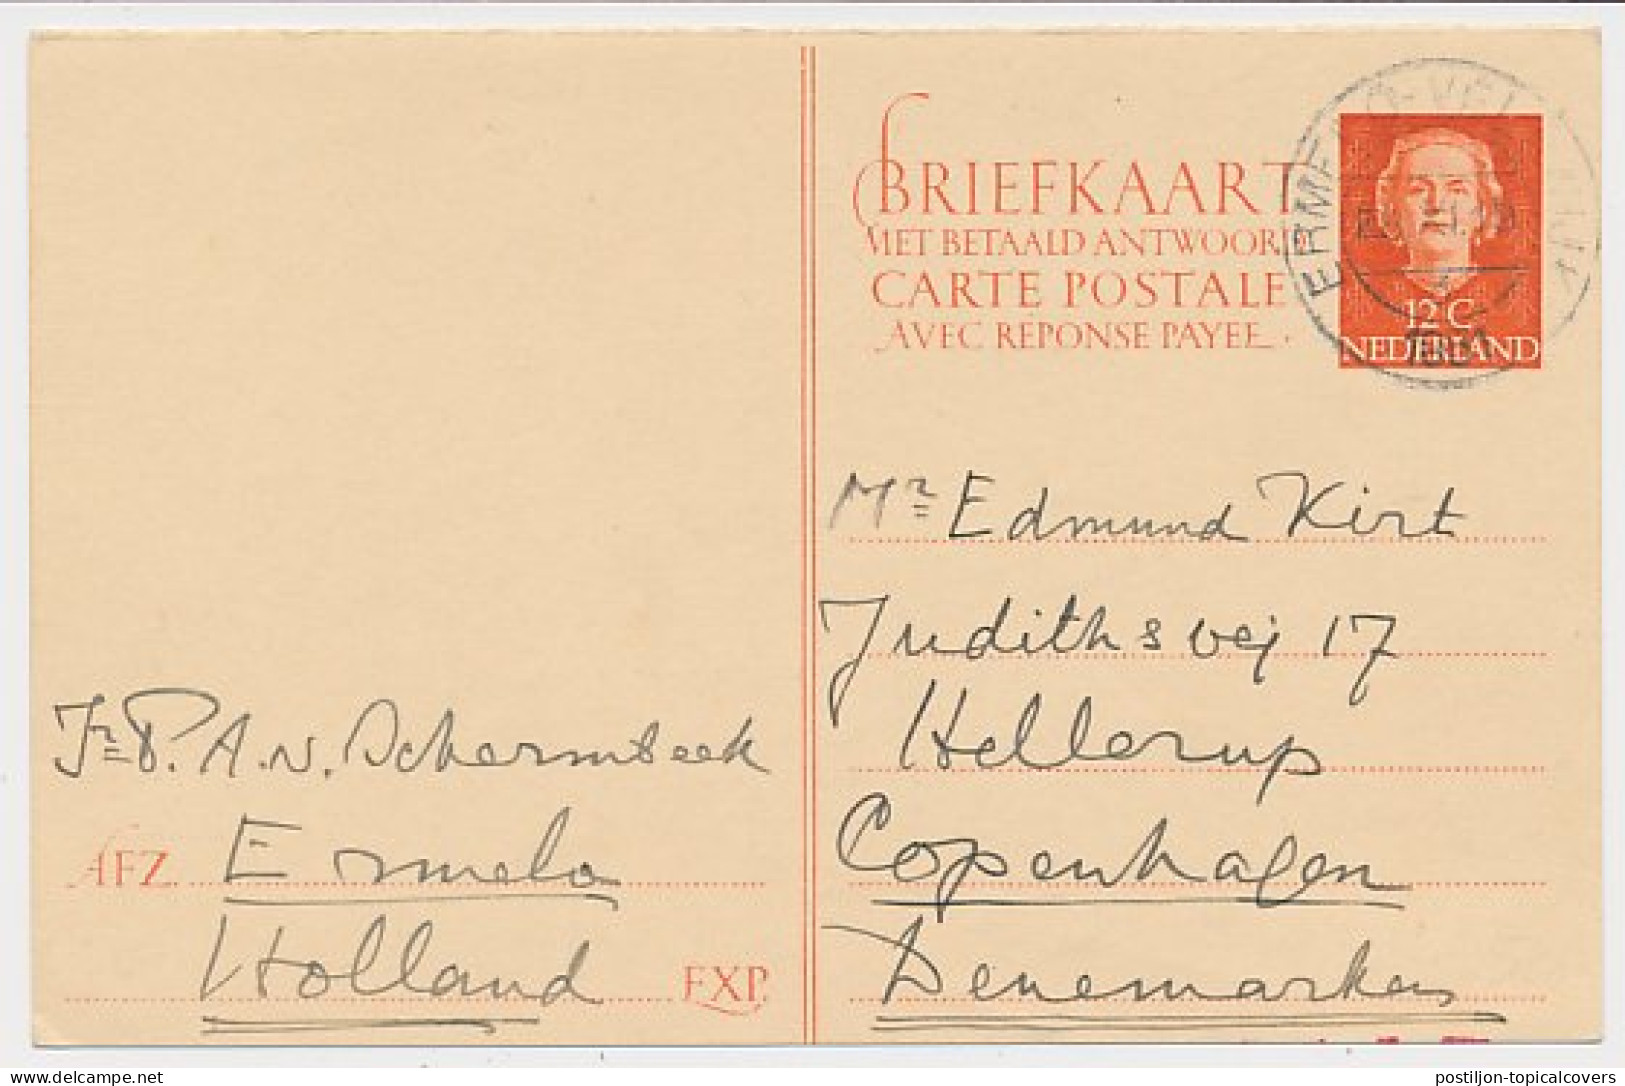 BRIEFKAART
MET BETAALD ANTWOORD
CARTE POSTALE
AVEC REPONSE PAYEE
12 C
NEDERLAND
1951
Mr Edmund Kirt
Judithsvej 17
Hellerup
Copenhagen
Denemarken
Jr P. A. v. Schermbeek
AFZ. Ermelo
Holland EXP.
Delcampe.net
postiljon-topicalcovers